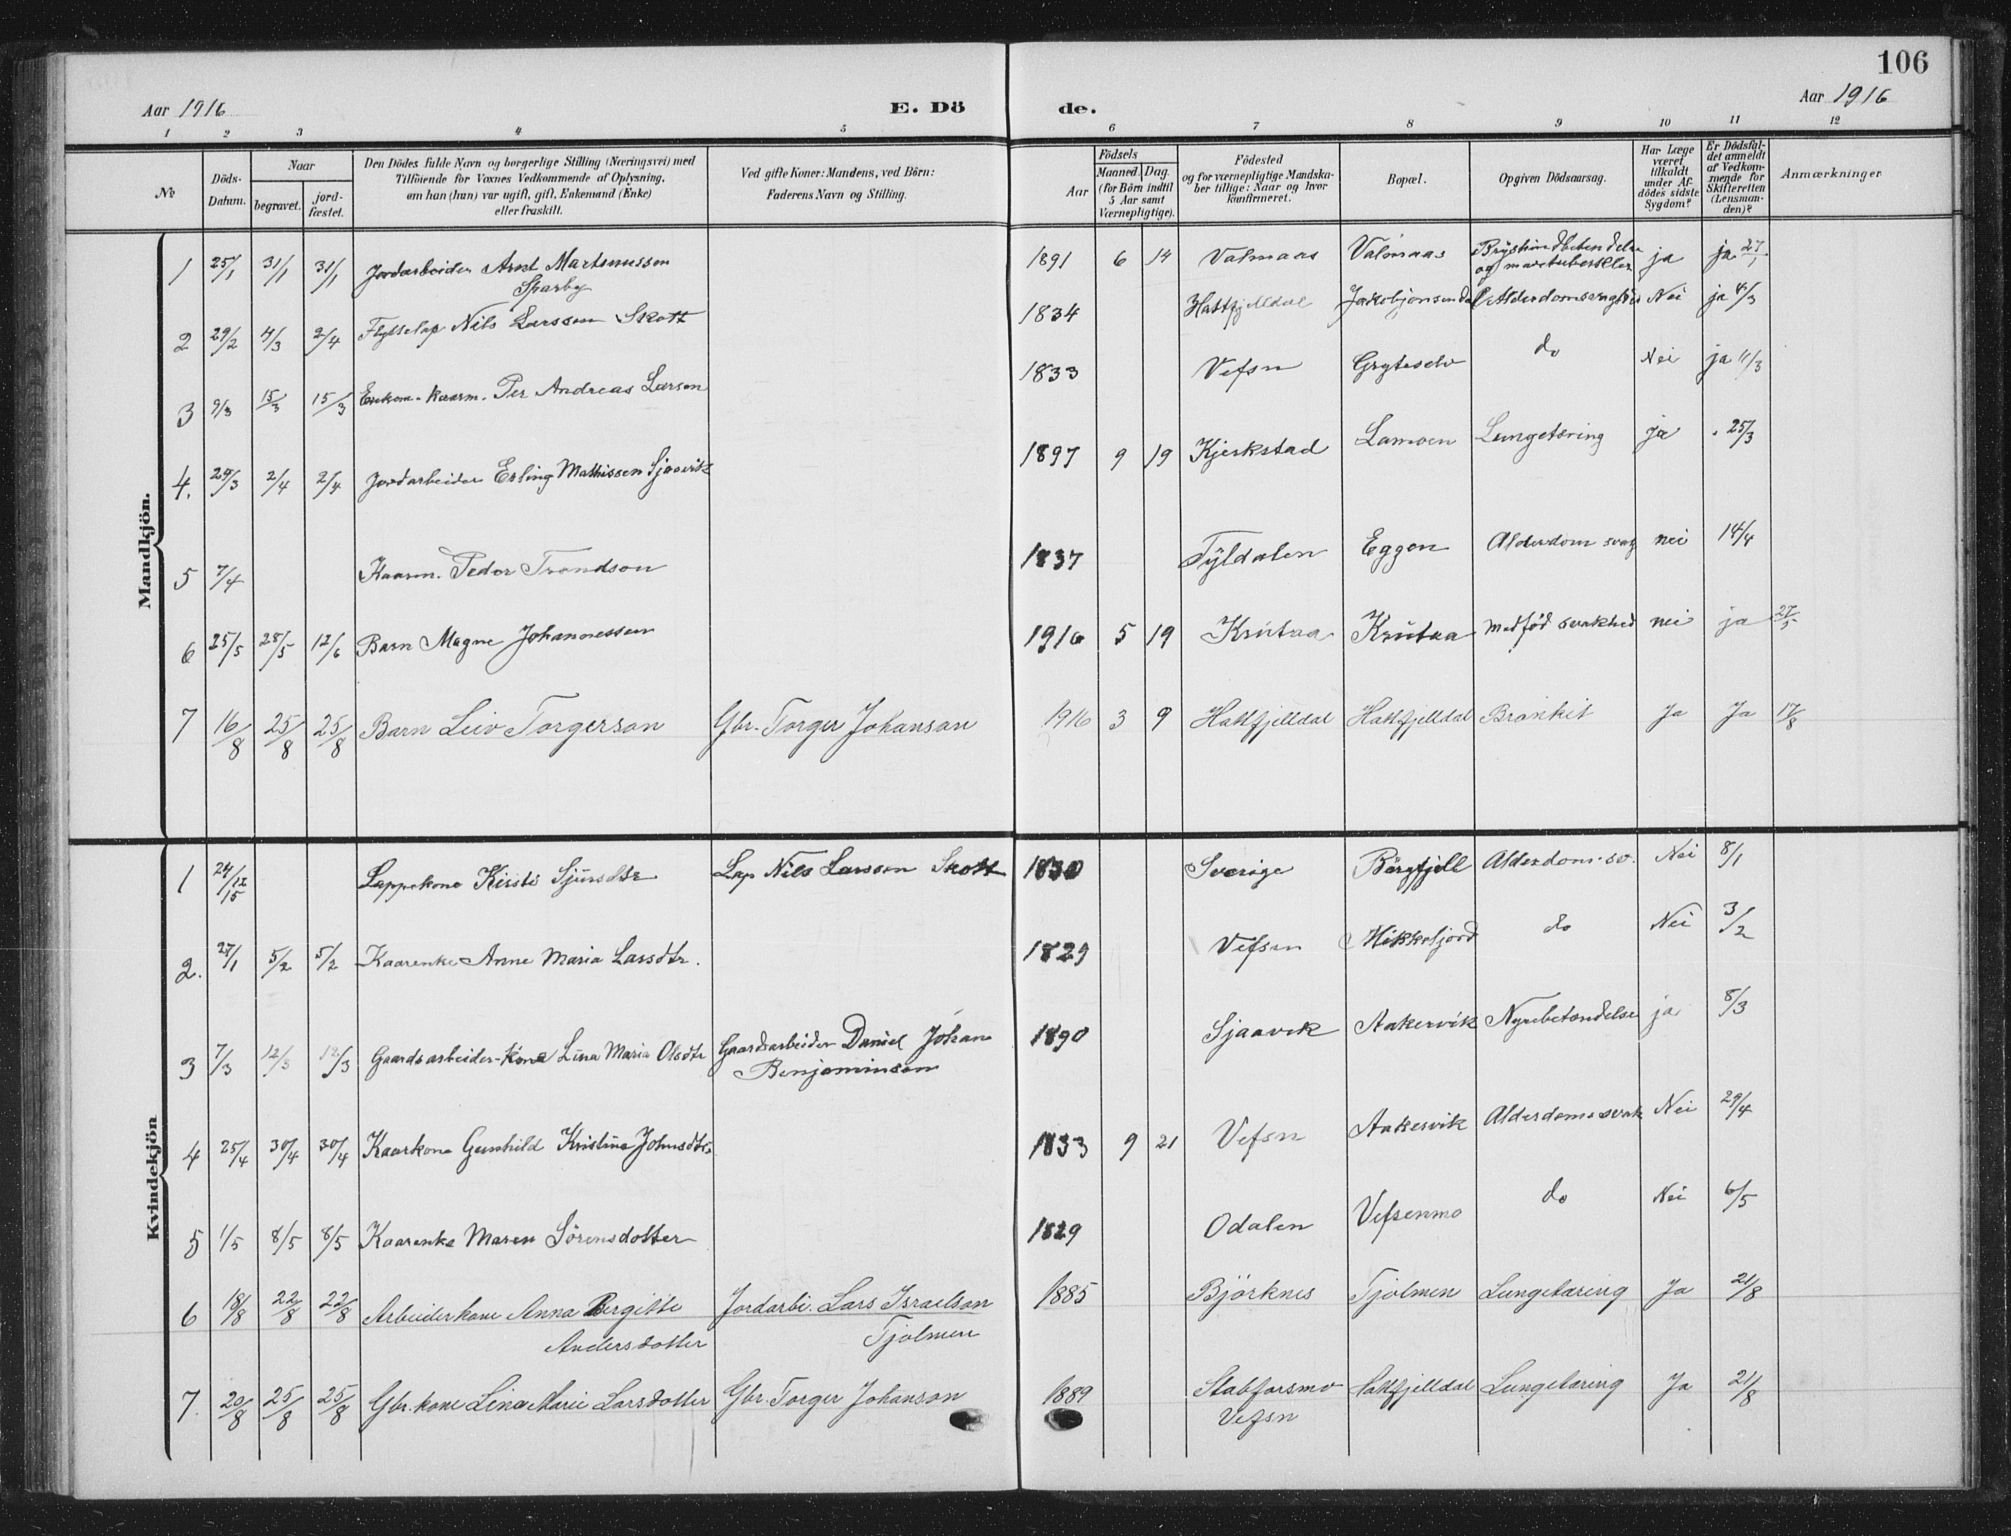 106
Aar 1916 E. Dö de. Aar 1916
1 2 3 4 5 6 7 8 9 10 11 12
№
Döds-
Datum.
Naar
begravet.
jord-
fæstet.
Den Dödes fulde Navn og borgerlige Stilling (Næringsvei) med
Tilföiende for Voxnes Vedkommende af Oplysning,
om han (hun) var ugift, gift, Enkemand (Enke)
eller fraskilt.
Ved gifte Koner: Mandens, ved Börn:
Faderens Navn og Stilling.
Födsels
Aar
Maaned. Dag.
(for Börn indtil
5 Aar samt
Værnepligtige).
Födested
og for værnepligtige Mandska-
ber tillige: Naar og hvor
konfirmeret.
Bopæl.
Opgiven Dödsaarsag.
Har Læge
været
tilkaldt
under Af-
dödes sidste
Sygdom?
Er Dödsfal-
det anmeldt
af Vedkom-
mende for
Skifteretten
(Lensman-
den)?
Anmærkninger
Mandkjön.
1 25/1 31/1 31/1 Jordarbeider Arnt Martinussen Sparby 1891 6 14 Valmaas Valmaas ja ja 27/1
2 29/2 4/3 2/4 Flytlap Nils Larsson Skott 1834 Hattfjelldal Nei ja 4/3
3 9/3 15/3 15/3 Per Andreas Larsen 1833 Vefsn Gryteselv do Nei ja 11/3
4. 29/3 2/4 2/4 Jordarbeider Erling Mathissen Sjaavik 1897 9 19 Kjerkstad Lamoen Lungetæring ja 25/3
5 7/4 Kaarm. Peder Trondson 1837 Tyldalen Eggen Alderdom svag nei 14/4
6 25/5 28/5 12/6 Barn Magne Johannessen 1916 5 19 Krutaa Krutaa medfød svakhed nei ja 27/5
7 16/8 25/8 25/8 Barn Leiv Torgerson Gbr. Torger Johanson 1916 3 9 Hattfjelldal Hattfjelldal Bronkit Ja Ja 17/8
Kvindekjön
1 24/12 15 Lappekone Kirsti Sjursdtr Lap Nils Larsson Skott 1830 Sverige Børgfjell Alderdom-sv. Nei 8/1
2. 27/1 5/2 5/2 Kaarenke Anne Maria Larsdtr. 1829 Vefsen do Nei 3/2
3 7/3 12/3 12/3 Gaardsarbeider-kone Lina Maria Olsdtr Gaardsarbeider Daniel Johan
Benjaminsen 1890 Sjaavik Aakervik Nyrebetændelse ja 8/3
4 25/4 30/4 30/4 Kaarkone Gunhild Kristine Johnsdtr. 1833 9 21 Vefsn Aakervik Alderdomssvak Nei 29/4
5 1/5 8/5 8/5 Kaarenke Maren Sörensdotter 1829 Odalen Vefsenmo do Nei 6/5
6 18/8 22/8 22/8 Arbeiderkone Anna Bergitte Jordarbi. Lars Israelson 1885 Björknes Tjolmen Lungetæring Ja 21/8
Andersdotter Tjolmen
7. 20/8 25/8 25/8 Gbr. kone Lina Marie Larsdotter Gbr. Torger Johanson 1889 Stabforsmo Hattfjelldal Lungetæring Ja 21/8
Vefsn